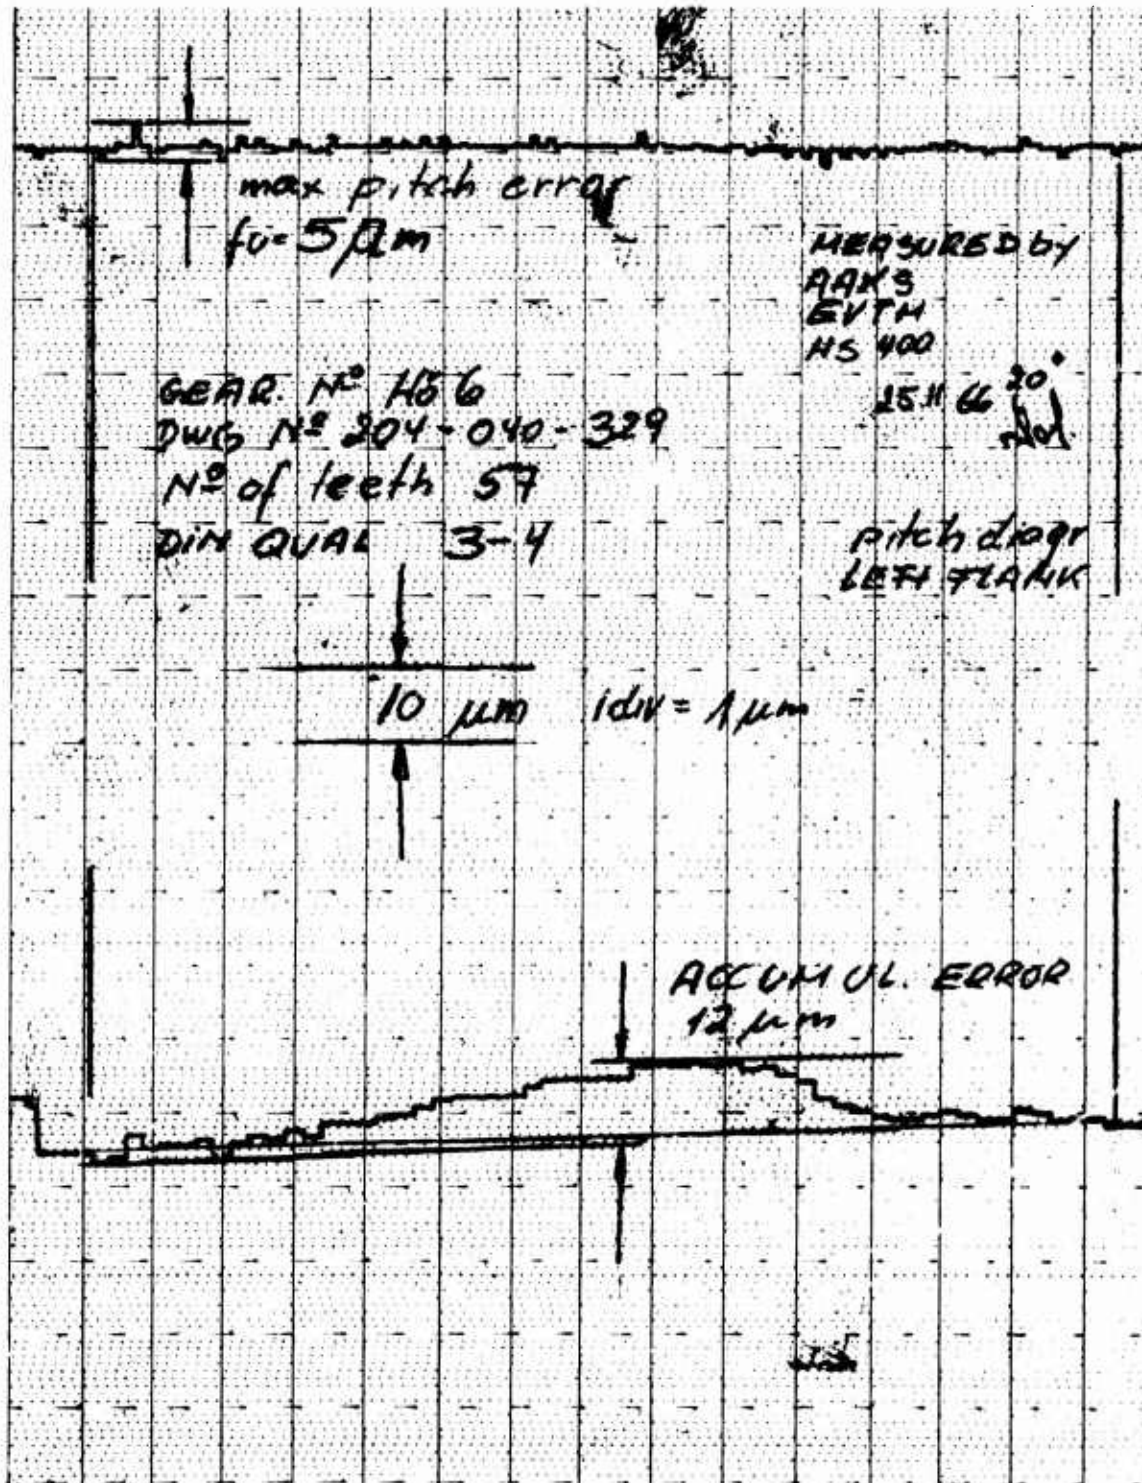 max pitch error
fu = 5 µm
MEASURED by
AAKS
EVTM
HS 400
25 11 66 20°
GEAR. Nº HS 6
DWG Nº 204-040-329
Nº of teeth 57
DIN QUAL 3-4
pitch diagr
LEFT FLANK
10 µm 1div = 1 µm
ACCUMUL. ERROR
12 µm